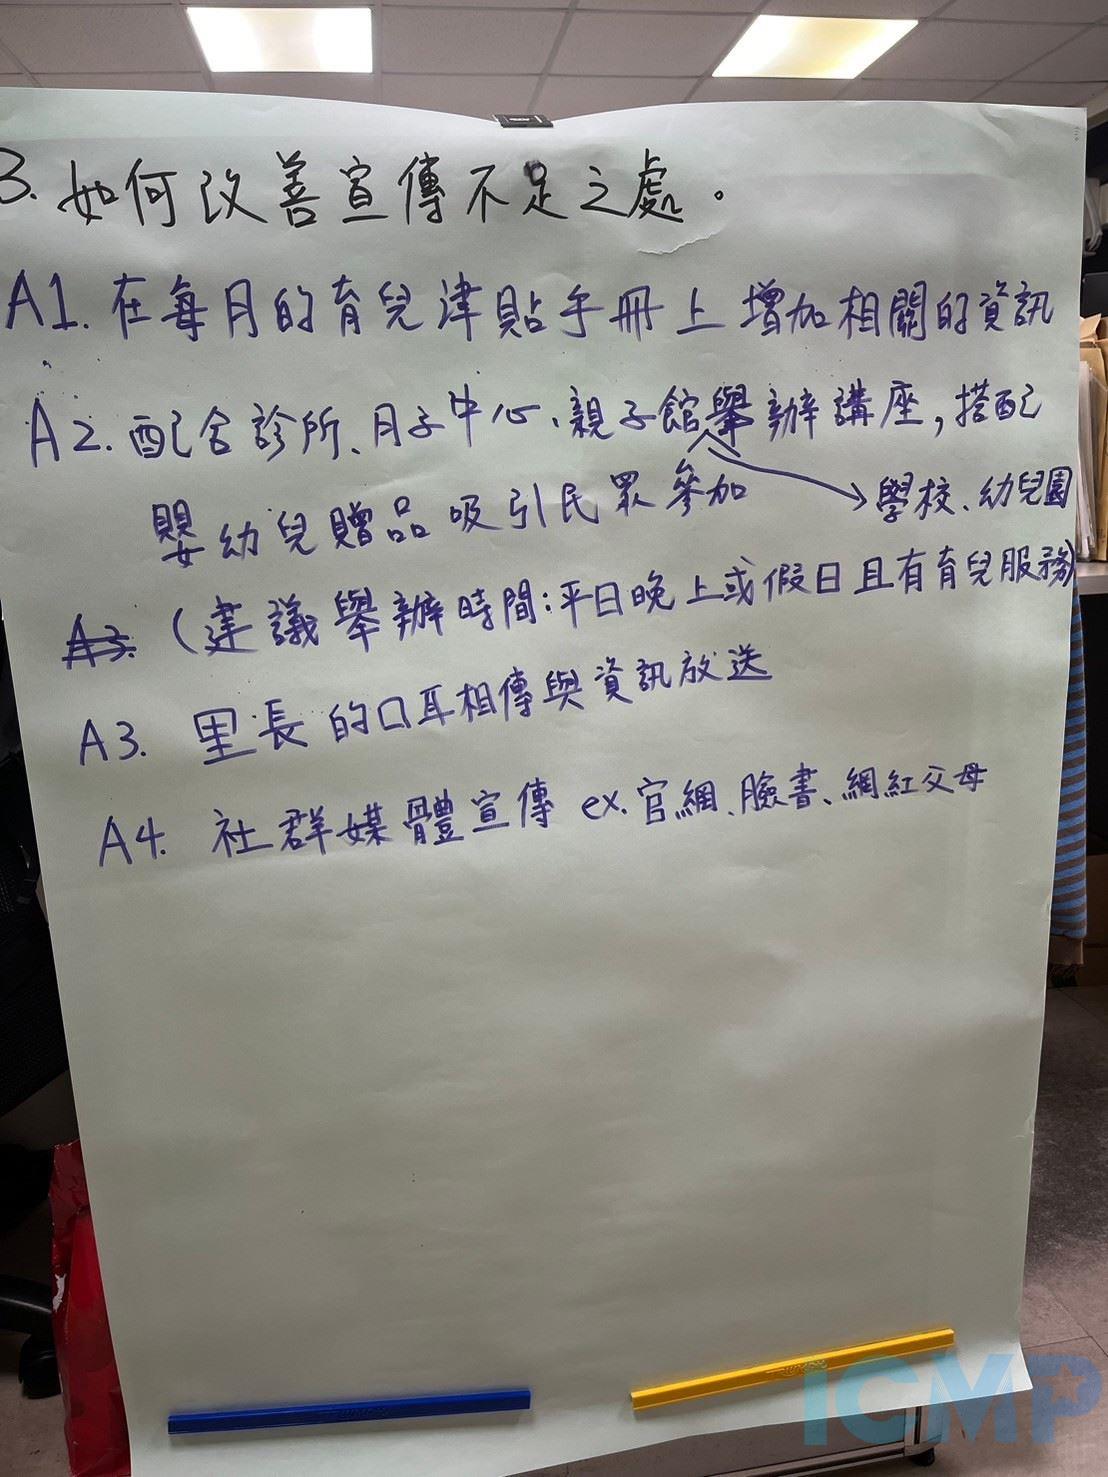 3. 如何改善宣傳不足之處。
A1. 在每月的育兒津貼手冊上增加相關的資訊
A2. 配合診所、月子中心、親子館舉辦講座，搭配
嬰幼兒贈品吸引民眾參加
學校、幼兒園
A3. (建議舉辦時間：平日晚上或假日且有育兒服務)
A3. 里長的口耳相傳與資訊放送
A4. 社群媒體宣傳 ex. 官網、臉書、網紅父母
ICMP